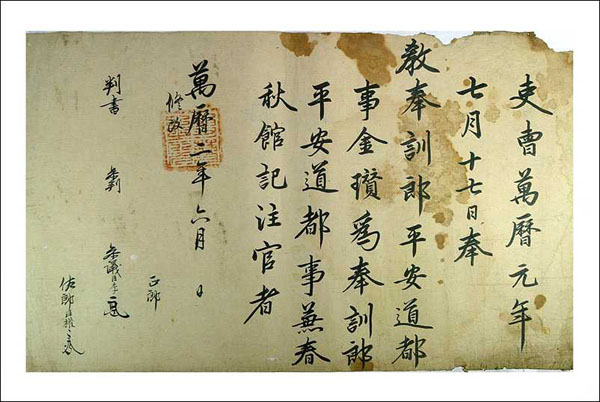 吏曹萬曆元年
七月十七日奉
教奉訓郎平安道都
事金瓚爲奉訓郎
平安道都事兼春
秋館記注官者
萬曆二年六月 日
修改
判書 參判 參議 正郎
佐郎